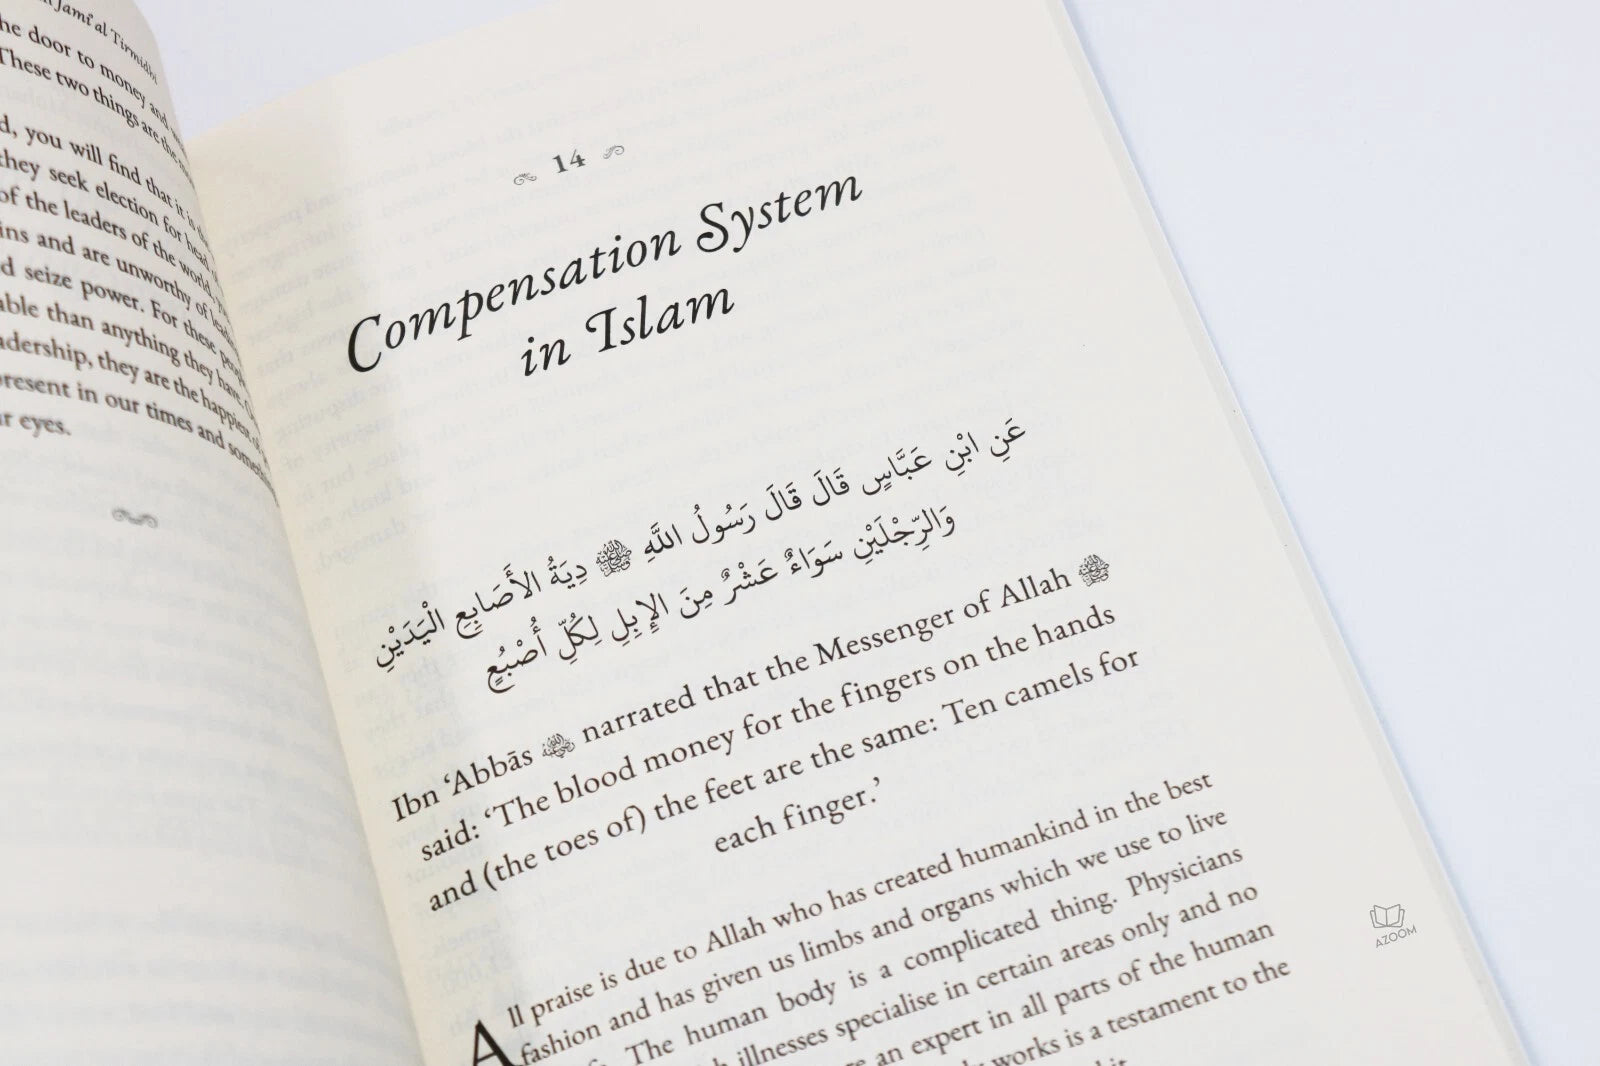 Jamiʿ al Tirmidhi
the door to money and
These two things are the
d, you will find that it is
they seek election for head
of the leaders of the world,
ins and are unworthy of
d seize power. For these people
able than anything they have.
adership, they are the happiest of
present in our times and
r eyes.
14
Compensation System
in Islam
عَنِ ابْنِ عَبَّاسٍ قَالَ قَالَ رَسُولُ اللَّهِ ﷺ دِيَةُ الأَصَابِعِ الْيَدَيْنِ
وَالرِّجْلَيْنِ سَوَاءٌ عَشْرٌ مِنَ الإِبِلِ لِكُلِّ أُصْبُعٍ
Ibn ‘Abbās narrated that the Messenger of Allah ﷺ
said: ‘The blood money for the fingers on the hands
and (the toes of) the feet are the same: Ten camels for
each finger.’
All praise is due to Allah who has created humankind in the best
fashion and has given us limbs and organs which we use to live
The human body is a complicated thing. Physicians
illnesses specialise in certain areas only and no
an expert in all parts of the human
works is a testament to the
AZOOM